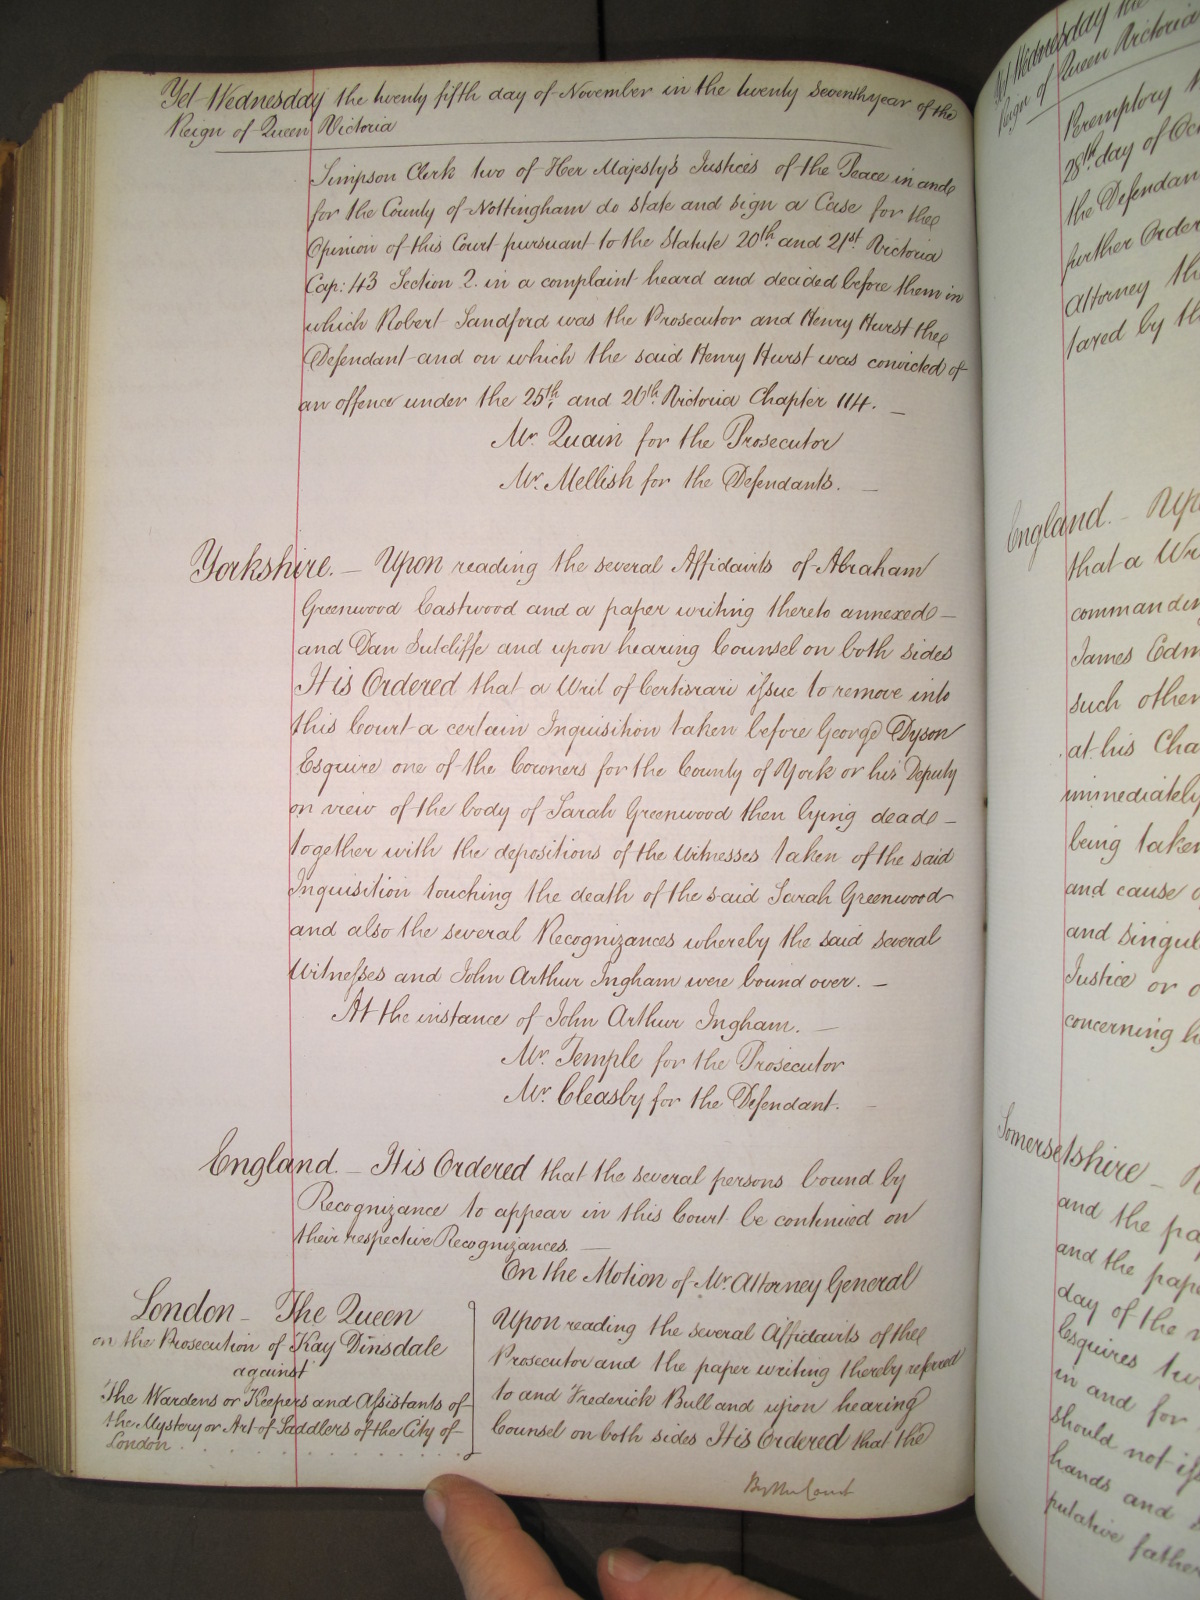 Yet Wednesday the twenty fifth day of November in the twenty seventh year of the
Reign of Queen Victoria
Simpson Clerk two of Her Majesty's Justices of the Peace in and
for the County of Nottingham do state and sign a Case for the
Opinion of this Court pursuant to the Statute 20th and 21st Victoria
Cap: 43 Section 2. in a complaint heard and decided before them in
which Robert Sandford was the Prosecutor and Henry Hurst the
Defendant and on which the said Henry Hurst was convicted of
an offence under the 25th and 26th Victoria Chapter 114. —
Mr. Quain for the Prosecutor
Mr. Mellish for the Defendants. —
Yorkshire. — Upon reading the several Affidavits of Abraham
Greenwood Eastwood and a paper writing thereto annexed —
and Dan Sutcliffe and upon hearing Counsel on both sides
It is Ordered that a Writ of Certiorari issue to remove into
this Court a certain Inquisition taken before George Dyson
Esquire one of the Coroners for the County of York or his Deputy
on view of the body of Sarah Greenwood then lying dead —
together with the depositions of the Witnesses taken of the said
Inquisition touching the death of the said Sarah Greenwood
and also the several Recognizances whereby the said several
Witnesses and John Arthur Ingham were bound over. —
At the instance of John Arthur Ingham. —
Mr. Temple for the Prosecutor
Mr. Cleasby for the Defendant. —
England. — It is Ordered that the several persons bound by
Recognizance to appear in this Court be continued on
their respective Recognizances. —
On the Motion of Mr. Attorney General
London — The Queen
on the Prosecution of Kay Dinsdale
against
The Wardens or Keepers and Assistants of
the Mystery or Art of Saddlers of the City of
London
Upon reading the several Affidavits of the
Prosecutor and the paper writing thereby referred
to and Frederick Bull and upon hearing
Counsel on both sides It is Ordered that the
By the Court
Yet Wednesday the
Reign of Queen Victoria
Peremptory
28th day of Oc
the Defendan
further Order
Attorney th
taxed by th
England. — Upo
that a Wr
commanding
James Edm
such other
at his Cha
immediately
being taken
and cause o
and singul
Justice or o
concerning h
Somersetshire —
and the pa
and the pape
day of the
Esquires tw
in and for
should not iss
hands and
putative father